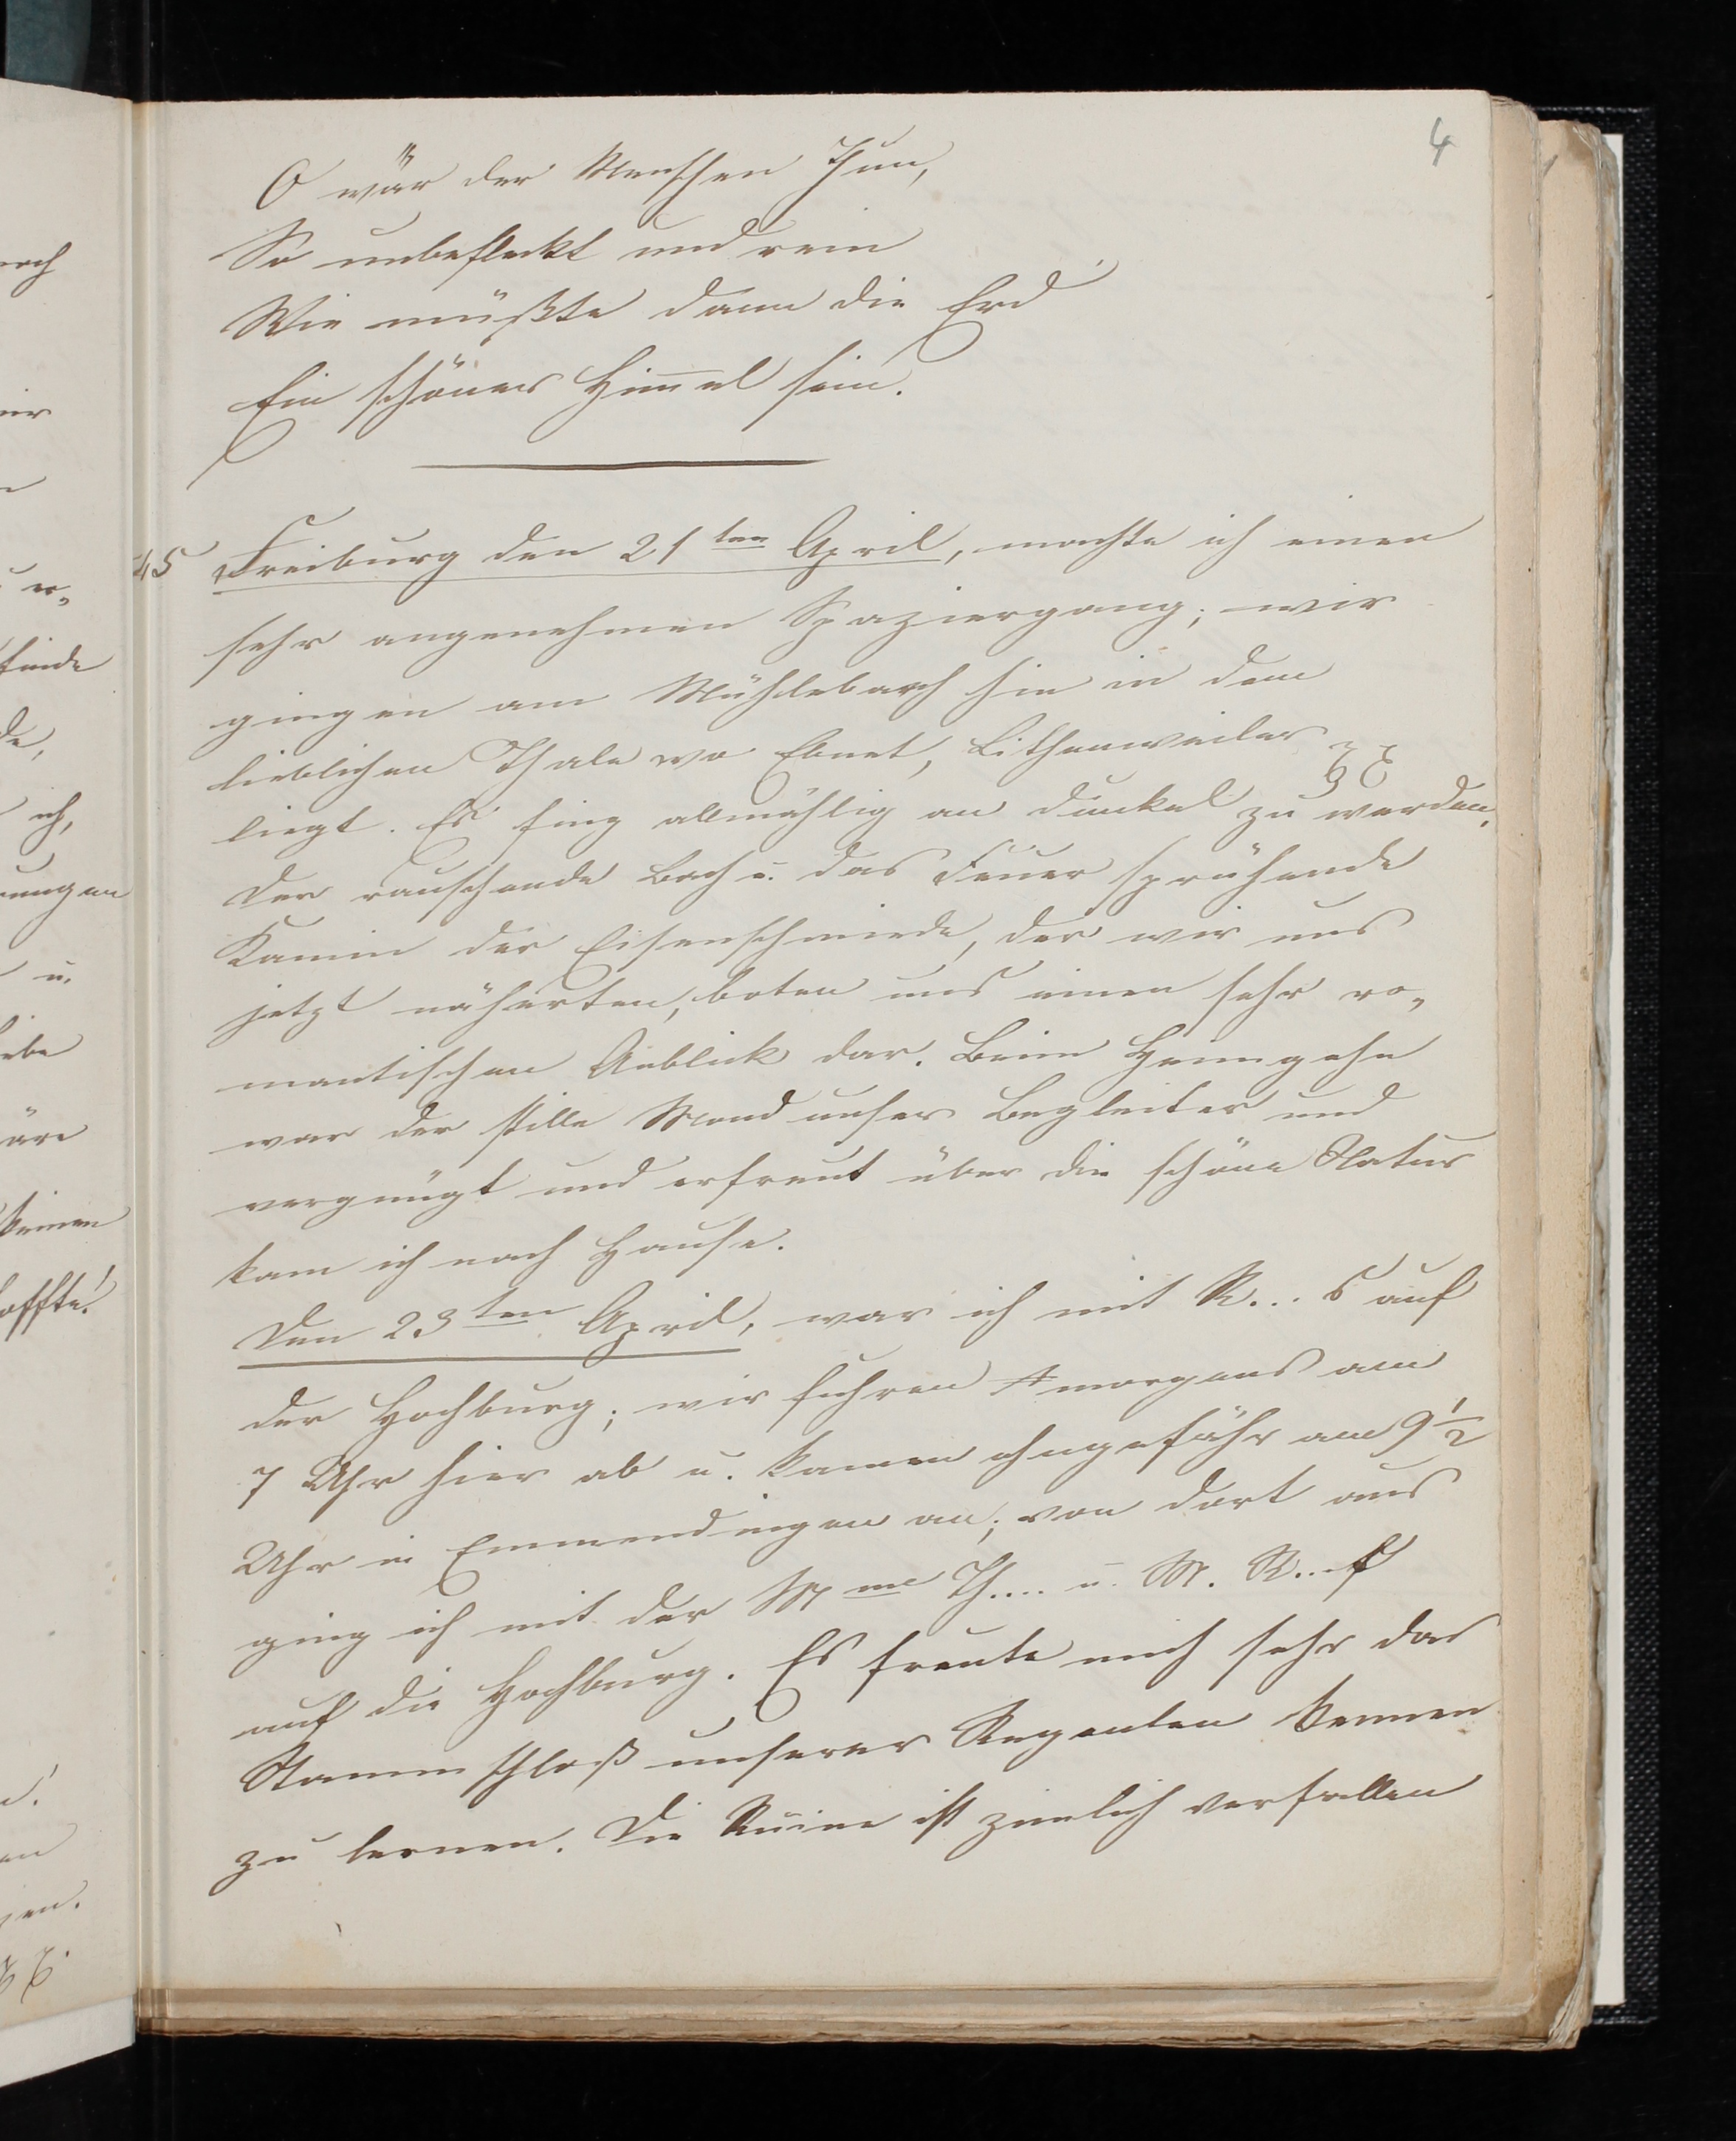 4
O wär der Menschen Thun,
So unbefleckt und rein
Wie müßte dann die Erd'
Ein schöner Himmel sein.
45 Freiburg den 21ten April, machte ich einen
sehr angenehmen Spaziergang; wir
gingen am Mühlebach hin in dem
lieblichen Thale wo Ebnet, Litthenweiler
liegt. Es fing allmählig an dunkel zu werden,
der rauschende Bach u. das Feuer sprühende
Kamin der Eisenschmiede, der wir uns
jetzt näherten, boten uns einen sehr ro-
mantischen Anblick dar. Beim Heimgehn
war der stille Mond unser Begleiter und
vergnügt und erfreut über die schöne Natur
kam ich nach Hause.
Den 23ten April, war ich mit R...s auf
der Hochburg; wir fuhren morgens um
7 Uhr hier ab u. kamen ohngefähr um 9 1/2
Uhr in Emmendingen an; von dort aus
ging ich mit der Mme Th.... u. M. R...f
auf die Hochburg. Es freute mich sehr das
Stammschloß unserer Regenten kennen
zu lernen. Die Ruine ist zimlich verfallen